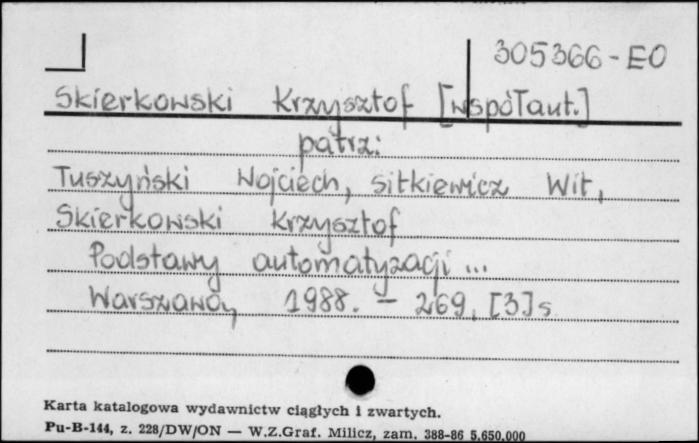 305366-EO
Skierkowski Krzysztof [współaut.]
patrz:
Tuszyński Wojciech, Sitkiewicz Wit,
Skierkowski Krzysztof
Podstawy automatyzacji ...
Warszawa, 1988. - 269, [3] s
Karta katalogowa wydawnictw ciągłych i zwartych.
Pu-B-144, z. 228/DW/ON — W.Z.Graf. Milicz, zam. 388-86 5.650.000